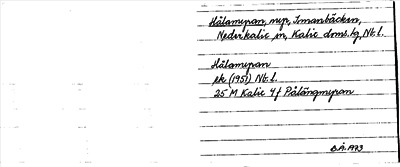 Hålamyran, myr, Innanbäcken,
Nederkalix sn, Kalix doms.lg, Nb l.
Hålamyran
ek (1951) Nb l.
25 M Kalix 4f Pålängmyran
B.Å. 1973